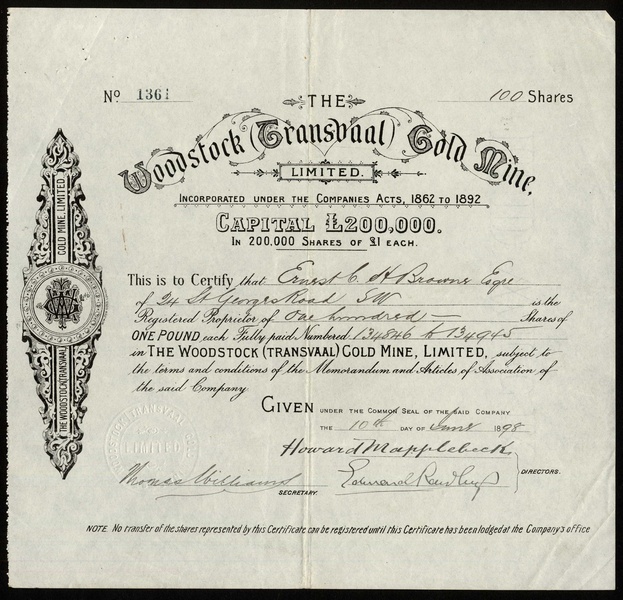 No 1361
100 Shares
THE
Woodstock (Transvaal) Gold Mine,
LIMITED.
INCORPORATED UNDER THE COMPANIES ACTS, 1862 TO 1892
CAPITAL £200,000.
IN 200.000 SHARES OF £1 EACH.
This is to Certify that Ernest C. H Browne Esqre
of 24 St Georges Road SW is the
Registered Proprietor of One hundred Shares of
ONE POUND, each Fully paid Numbered 134846 to 134945
in THE WOODSTOCK (TRANSVAAL) GOLD MINE, LIMITED, subject to
the terms and conditions of the Memorandum and Articles of Association of
the said Company
GIVEN UNDER THE COMMON SEAL OF THE SAID COMPANY
THE 10th DAY OF June 1898
Howard Mapplebeck
Thomas Williams
Edward
DIRECTORS.
SECRETARY.
NOTE. No transfer of the shares represented by this Certificate can be registered until this Certificate has been lodged at the Company's office
THE WOODSTOCK (TRANSVAAL)
GOLD MINE, LIMITED.